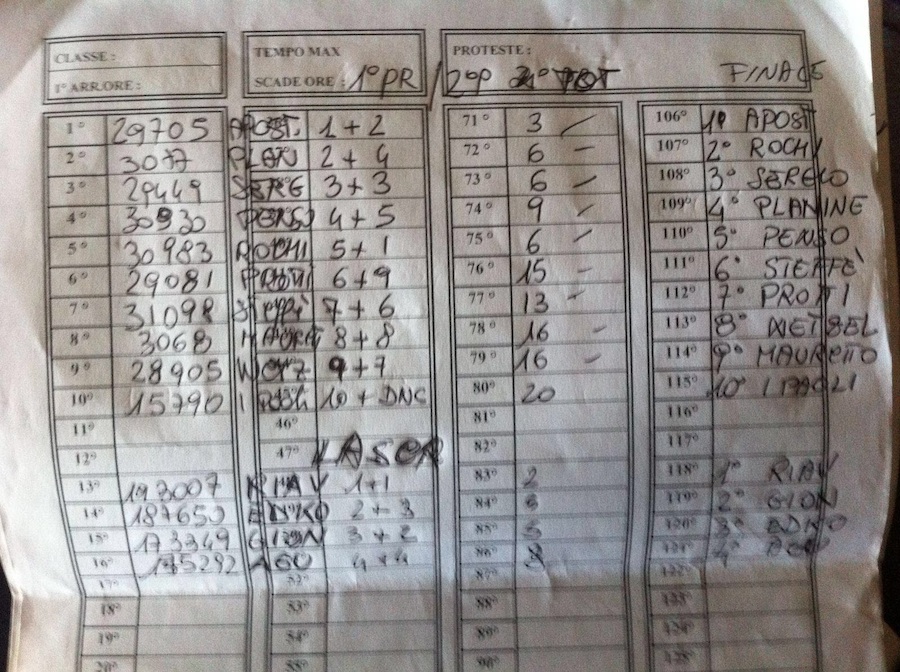 CLASSE :
1° ARR.ORE :
TEMPO MAX
SCADE ORE : 1° PR / 2° P
PROTESTE :
FINALS
1° 29705 APOST. 1 + 2 71° 3 106° 1° APOST
2° 3077 PLAN 2 + 4 72° 6 107° 2° ROCHI
3° 29449 SERE 3 + 3 73° 6 108° 3° SERELO
4° PENSO 4 + 5 74° 9 109° 4° PLANINE
5° 30983 ROCHI 5 + 1 75° 6 110° 5° PENSO
6° 29081 6 + 9 76° 15 111° 6° STEFFÈ
7° 31098 7 + 6 77° 13 112° 7°
8° 3068 8 + 8 78° 16 113° 8°
9° 28905 9 + 7 79° 16 114° 9°
10° 15790 10 + DNC 80° 20 115° 10° I PAOLI
11° 46° 81° 116°
12° 47° LASER 82° 117°
13° 193007 RIAV 1 + 1 83° 2 118° 1° RIAV
14° 187650 EDKO 2 + 3 84° 5 119° 2° GION
15° GION 3 + 2 85° 5 120° 3° EDKO
16° 4 + 4 86° 8 121° 4°
17° 52° 87° 122°
18° 53° 88° 123°
19° 54° 89° 124°
20° 55° 90° 125°